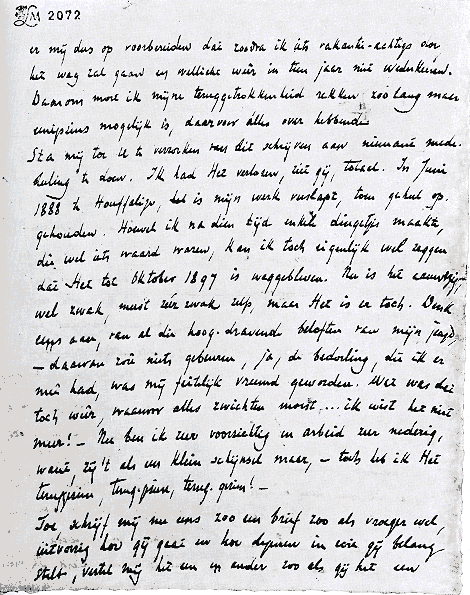 LM 2072
er mij dus op voorbereiden dat zoodra ik iets vakantie-achtigs door
het weg zal gaan en wellicht weêr in tien jaar niet wederkeeren.
Daarom moet ik mijne teruggetrokkenheid rekken zoo lang maar
eenigszins mogelijk is, daarvoor alles over hebbende
Sta mij toe u te verzoeken van dit schrijven aan niemand mede-
deeling te doen. Ik had Het verloren, ziet gij, totaal. In Juni
1888 te Houffalize, het is mijn werk verslapt, toen geheel op-
gehouden. Hoewel ik na dien tijd enkele dingetjes maakte,
die wel iets waard waren, kan ik toch eigenlijk wel zeggen
dat Het tot Oktober 1897 is weggebleven. Nu is het
wel zwak, zéér zwak zelfs, maar Het is er toch. Denk
eens aan, van al die hoog-dravende beloften van mijn jeugd
– daarvan zoû niets gebeuren, ja, de bedoeling, die ik er
meê had, was mij feitelijk vreemd geworden. Wat was dat
toch weêr, waarvoor alles zwichten moest... ik wist het niet
meer! – Nu ben ik zeer voorzichtig en arbeid zeer nederig,
want, zij 't als een klein schijnsel maar, – toch heb ik Het
terug-
Toe schrijf mij nu eens zoo een brief zoo als vroeger wel,
uitvoerig hoe gij gaat en hoe degenen in wie gij belang
stelt, vertel mij het een en ander zoo als gij het een